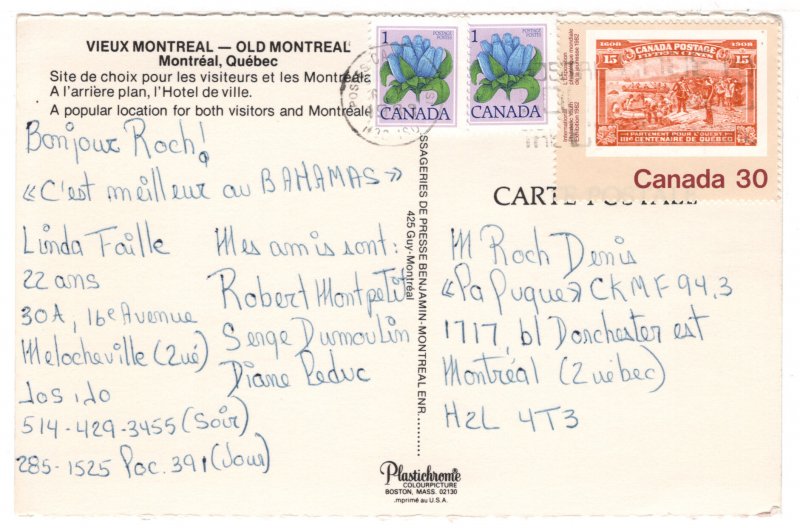 VIEUX MONTREAL — OLD MONTREAL
Montréal, Québec
Site de choix pour les visiteurs et les Montréala
A l'arrière plan, l'Hotel de ville.
A popular location for both visitors and Montreale
1
POSTES POSTAGE
CANADA
1
POSTES POSTAGE
CANADA
International
Philatelic Youth
Exhibition 1982
L'Exposition
philatélique mondiale
de la jeunesse 1982
1608
CANADA POSTAGE
1908
15
FIFTEEN CENTS
15
PARTEMENT POUR L'OUEST
IIIe CENTENAIRE DE QUÉBEC
Canada 30
Bonjour Roch!
«C'est meilleur au BAHAMAS»
Linda Faille
22 ans
30A, 16e Avenue
Melocheville (Qué)
J0S 1J0
514-429-3455 (Soir)
285-1525 Poc. 391 (Jour)
Mes amis sont:
Robert Montpetit
Serge Dumoulin
Diane Leduc
SSAGERIES DE PRESSE BENJAMIN-MONTREAL ENR.
425 Guy-Montréal
CARTE POSTALE
M Roch Denis
«Pa Puque» CKMF 94,3
1717, bl Dorchester est
Montréal (Québec)
H2L 4T3
Plastichrome
COLOURPICTURE
BOSTON, MASS. 02130
Imprimé au U.S.A.